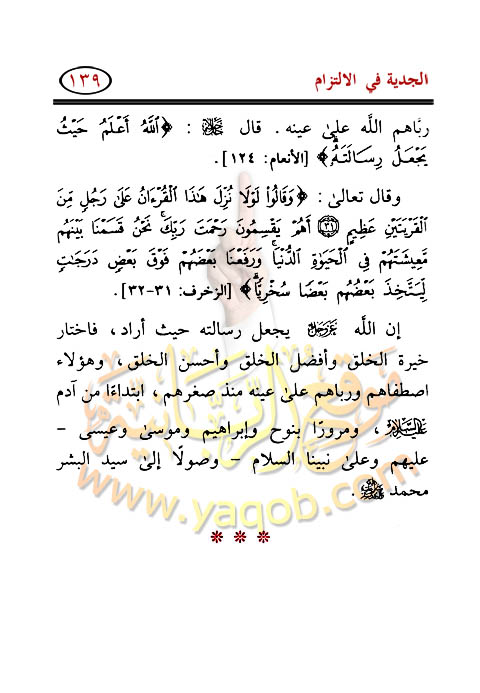 الجدية في الالتزام
١٣٩
ربَّاهم اللَّه علىٰ عينه. قال ﷻ : ﴿ اللَّهُ أَعْلَمُ حَيْثُ
يَجْعَلُ رِسَالَتَهُۥ ﴾ [الأنعام: ١٢٤].
وقال تعالىٰ : ﴿ وَقَالُوا۟ لَوْلَا نُزِّلَ هَٰذَا الْقُرْءَانُ عَلَىٰ رَجُلٍ مِّنَ
الْقَرْيَتَيْنِ عَظِيمٍ ﴿٣١﴾ أَهُمْ يَقْسِمُونَ رَحْمَتَ رَبِّكَ ۚ نَحْنُ قَسَمْنَا بَيْنَهُم
مَّعِيشَتَهُمْ فِي الْحَيَوٰةِ الدُّنْيَا ۚ وَرَفَعْنَا بَعْضَهُمْ فَوْقَ بَعْضٍ دَرَجَٰتٍ
لِّيَتَّخِذَ بَعْضُهُم بَعْضًا سُخْرِيًّا ۗ ﴾ [الزخرف: ٣١-٣٢].
إن اللَّه عَزَّوَجَلَّ يجعل رسالته حيث أراد، فاختار
خيرة الخلق وأفضل الخلق وأحسن الخلق، وهؤلاء
اصطفاهم ورباهم علىٰ عينه منذ صغرهم، ابتداءًا من آدم
عَلَيْهِ السَّلَامُ ، ومرورًا بنوح وإبراهيم وموسىٰ وعيسى –
عليهم وعلىٰ نبينا السلام – وصولًا إلىٰ سيد البشر
محمد ﷺ .
* * *
موقع الربانية
www.yaqob.com